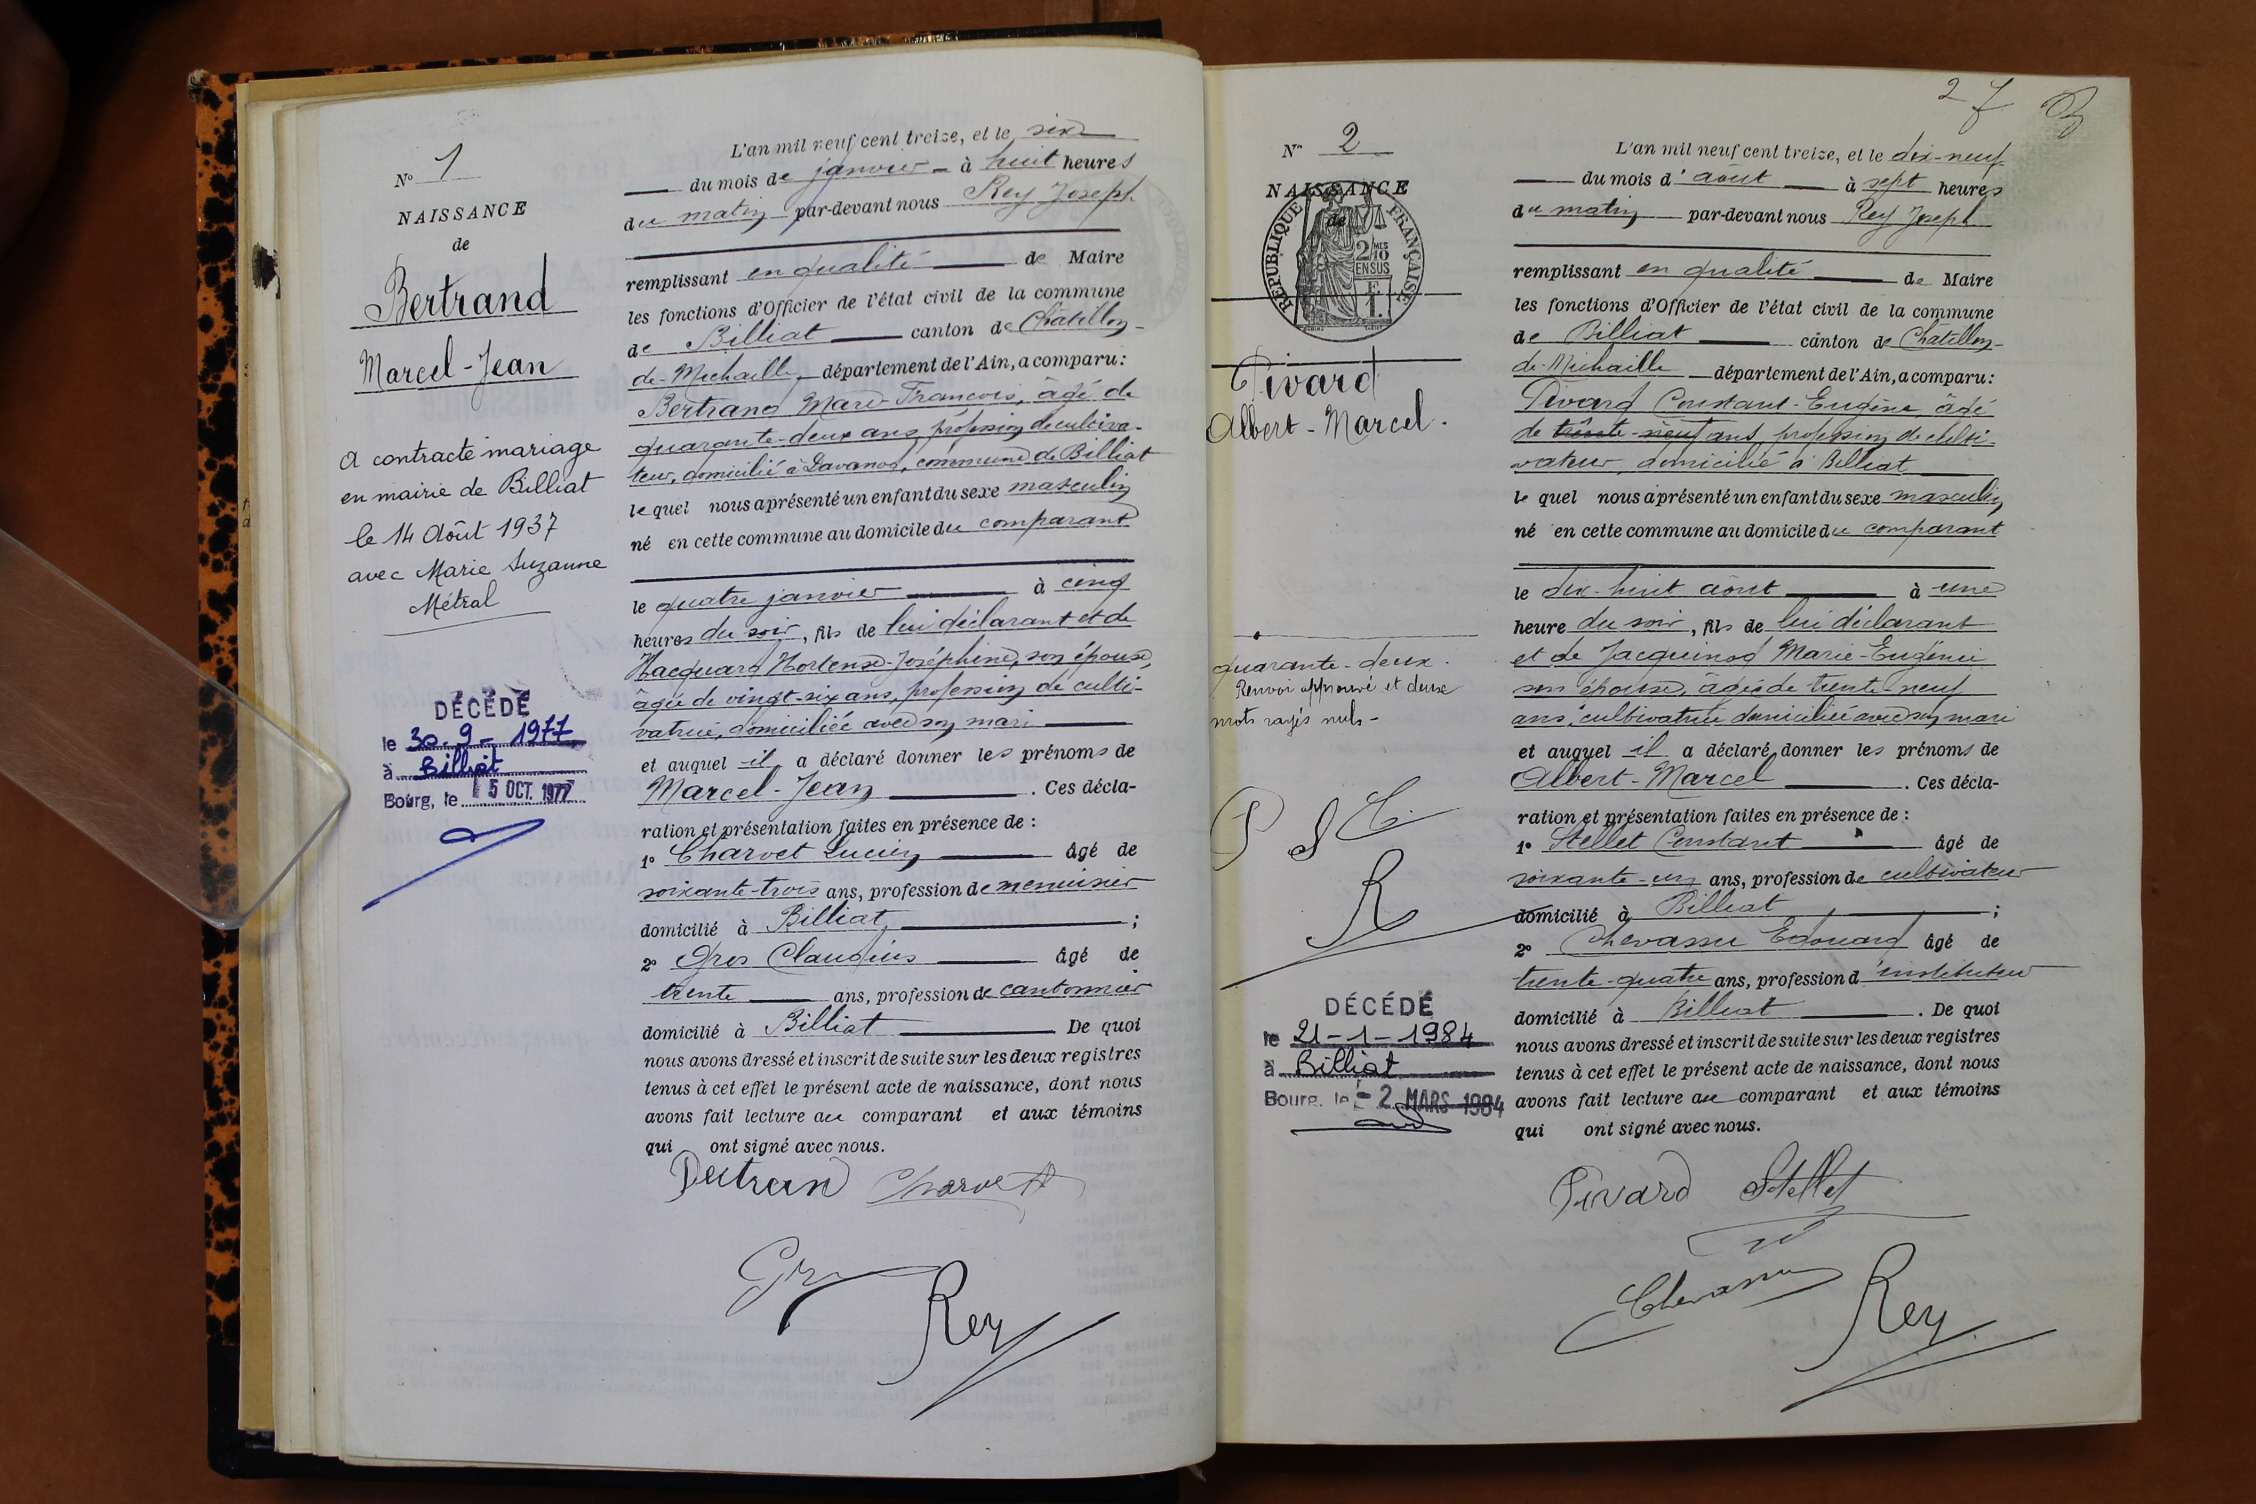 N° 1
NAISSANCE
de
Bertrand
Marcel-Jean
A contracté mariage
en mairie de Billiat
le 14 Août 1937
avec Marie Suzanne
Métral
DÉCÉDÉ
le 30-9-1977
à Billiat
Bourg, le 5 OCT. 1977
L'an mil neuf cent treize, et le six
du mois de janvier à huit heures
du matin par-devant nous Rey Joseph
remplissant en qualité de Maire
les fonctions d'Officier de l'état civil de la commune
de Billiat canton de Châtillon-
de-Michaille, département de l'Ain, a comparu:
Bertrand Marie-François, âgé de
quarante-deux ans, profession de cultiva-
teur, domicilié à Davanod, commune de Billiat
lequel nous a présenté un enfant du sexe masculin
né en cette commune au domicile du comparant
le quatre janvier à cinq
heures du soir, fils de lui déclarant et de
Hacquard Hortense-Joséphine, son épouse,
âgée de vingt-six ans, profession de culti-
vatrice, domiciliée avec son mari
et auquel il a déclaré donner les prénoms de
Marcel-Jean. Ces décla-
ration et présentation faites en présence de :
1° Charvet Lucien âgé de
soixante-trois ans, profession de menuisier
domicilié à Billiat ;
2° Gros Claudius âgé de
trente ans, profession de cantonnier
domicilié à Billiat De quoi
nous avons dressé et inscrit de suite sur les deux registres
tenus à cet effet le présent acte de naissance, dont nous
avons fait lecture au comparant et aux témoins
qui ont signé avec nous.
Bertrand Charvet
Gros
Rey
27
N° 2
NAISSANCE
de
RÉPUBLIQUE FRANÇAISE
2/10 MES
EN SUS
Pivard
Albert-Marcel.
quarante-deux.
Renvoi approuvé et deux
mots rayés nuls-
P S C
R
DÉCÉDÉ
le 21-1-1984
à Billiat
Bourg, le -2 MARS 1984
L'an mil neuf cent treize, et le dix-neuf
du mois d'août à sept heures
du matin par-devant nous Rey Joseph
remplissant en qualité de Maire
les fonctions d'Officier de l'état civil de la commune
de Billiat canton de Châtillon-
de-Michaille département de l'Ain, a comparu:
Pivard Constant-Eugène, âgé
de trente-neuf ans, profession de culti-
vateur, domicilié à Billiat
lequel nous a présenté un enfant du sexe masculin,
né en cette commune au domicile du comparant
le dix-huit août à une
heure du soir, fils de lui déclarant
et de Jacquinod Marie-Eugénie
son épouse, âgée de trente-neuf
ans, cultivatrice domiciliée avec son mari
et auquel il a déclaré donner les prénoms de
Albert-Marcel. Ces décla-
ration et présentation faites en présence de :
1° Stellet Constant âgé de
soixante-un ans, profession de cultivateur
domicilié à Billiat ;
2° Chevassu Edouard âgé de
trente-quatre ans, profession d'instituteur
domicilié à Billiat. De quoi
nous avons dressé et inscrit de suite sur les deux registres
tenus à cet effet le présent acte de naissance, dont nous
avons fait lecture au comparant et aux témoins
qui ont signé avec nous.
Pivard Stellet
Chevassu
Rey